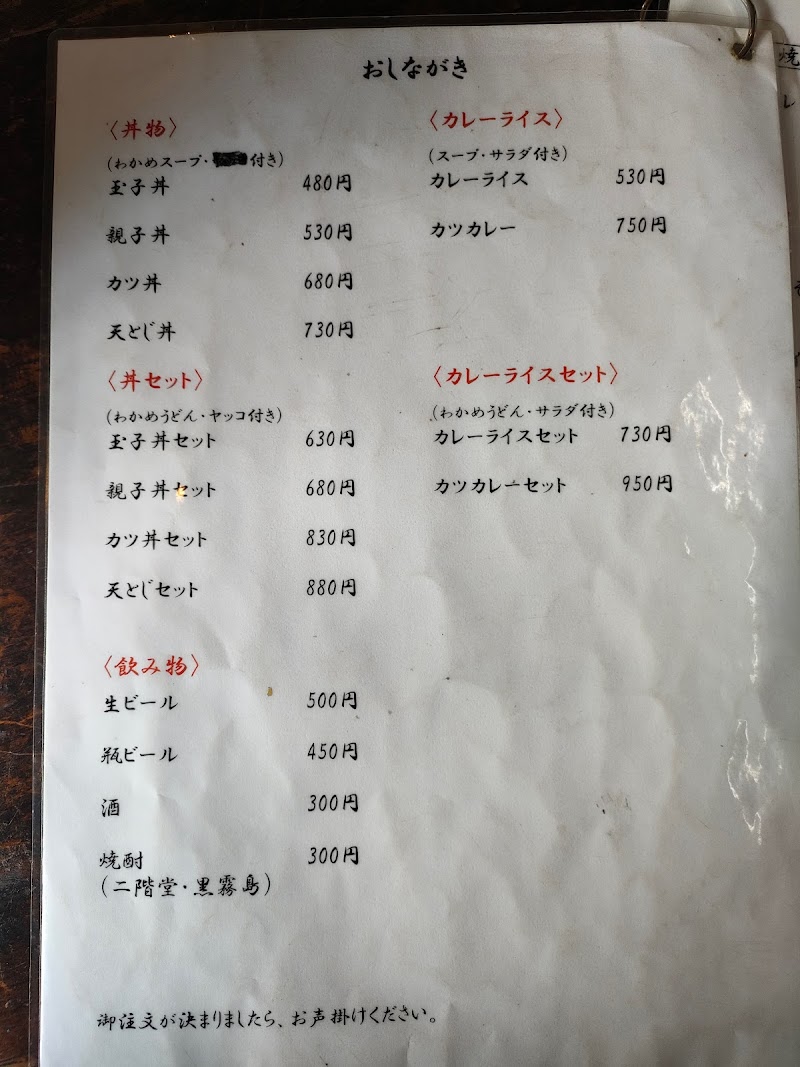 おしながき
〈丼物〉
(わかめスープ・付き)
玉子丼 480円
親子丼 530円
カツ丼 680円
天とじ丼 730円
〈カレーライス〉
(スープ・サラダ付き)
カレーライス 530円
カツカレー 750円
〈丼セット〉
(わかめうどん・ヤッコ付き)
玉子丼セット 630円
親子丼セット 680円
カツ丼セット 830円
天とじセット 880円
〈カレーライスセット〉
(わかめうどん・サラダ付き)
カレーライスセット 730円
カツカレーセット 950円
〈飲み物〉
生ビール 500円
瓶ビール 450円
酒 300円
焼酎 300円
(二階堂・黒霧島)
御注文が決まりましたら、お声掛けください。
焼
レ